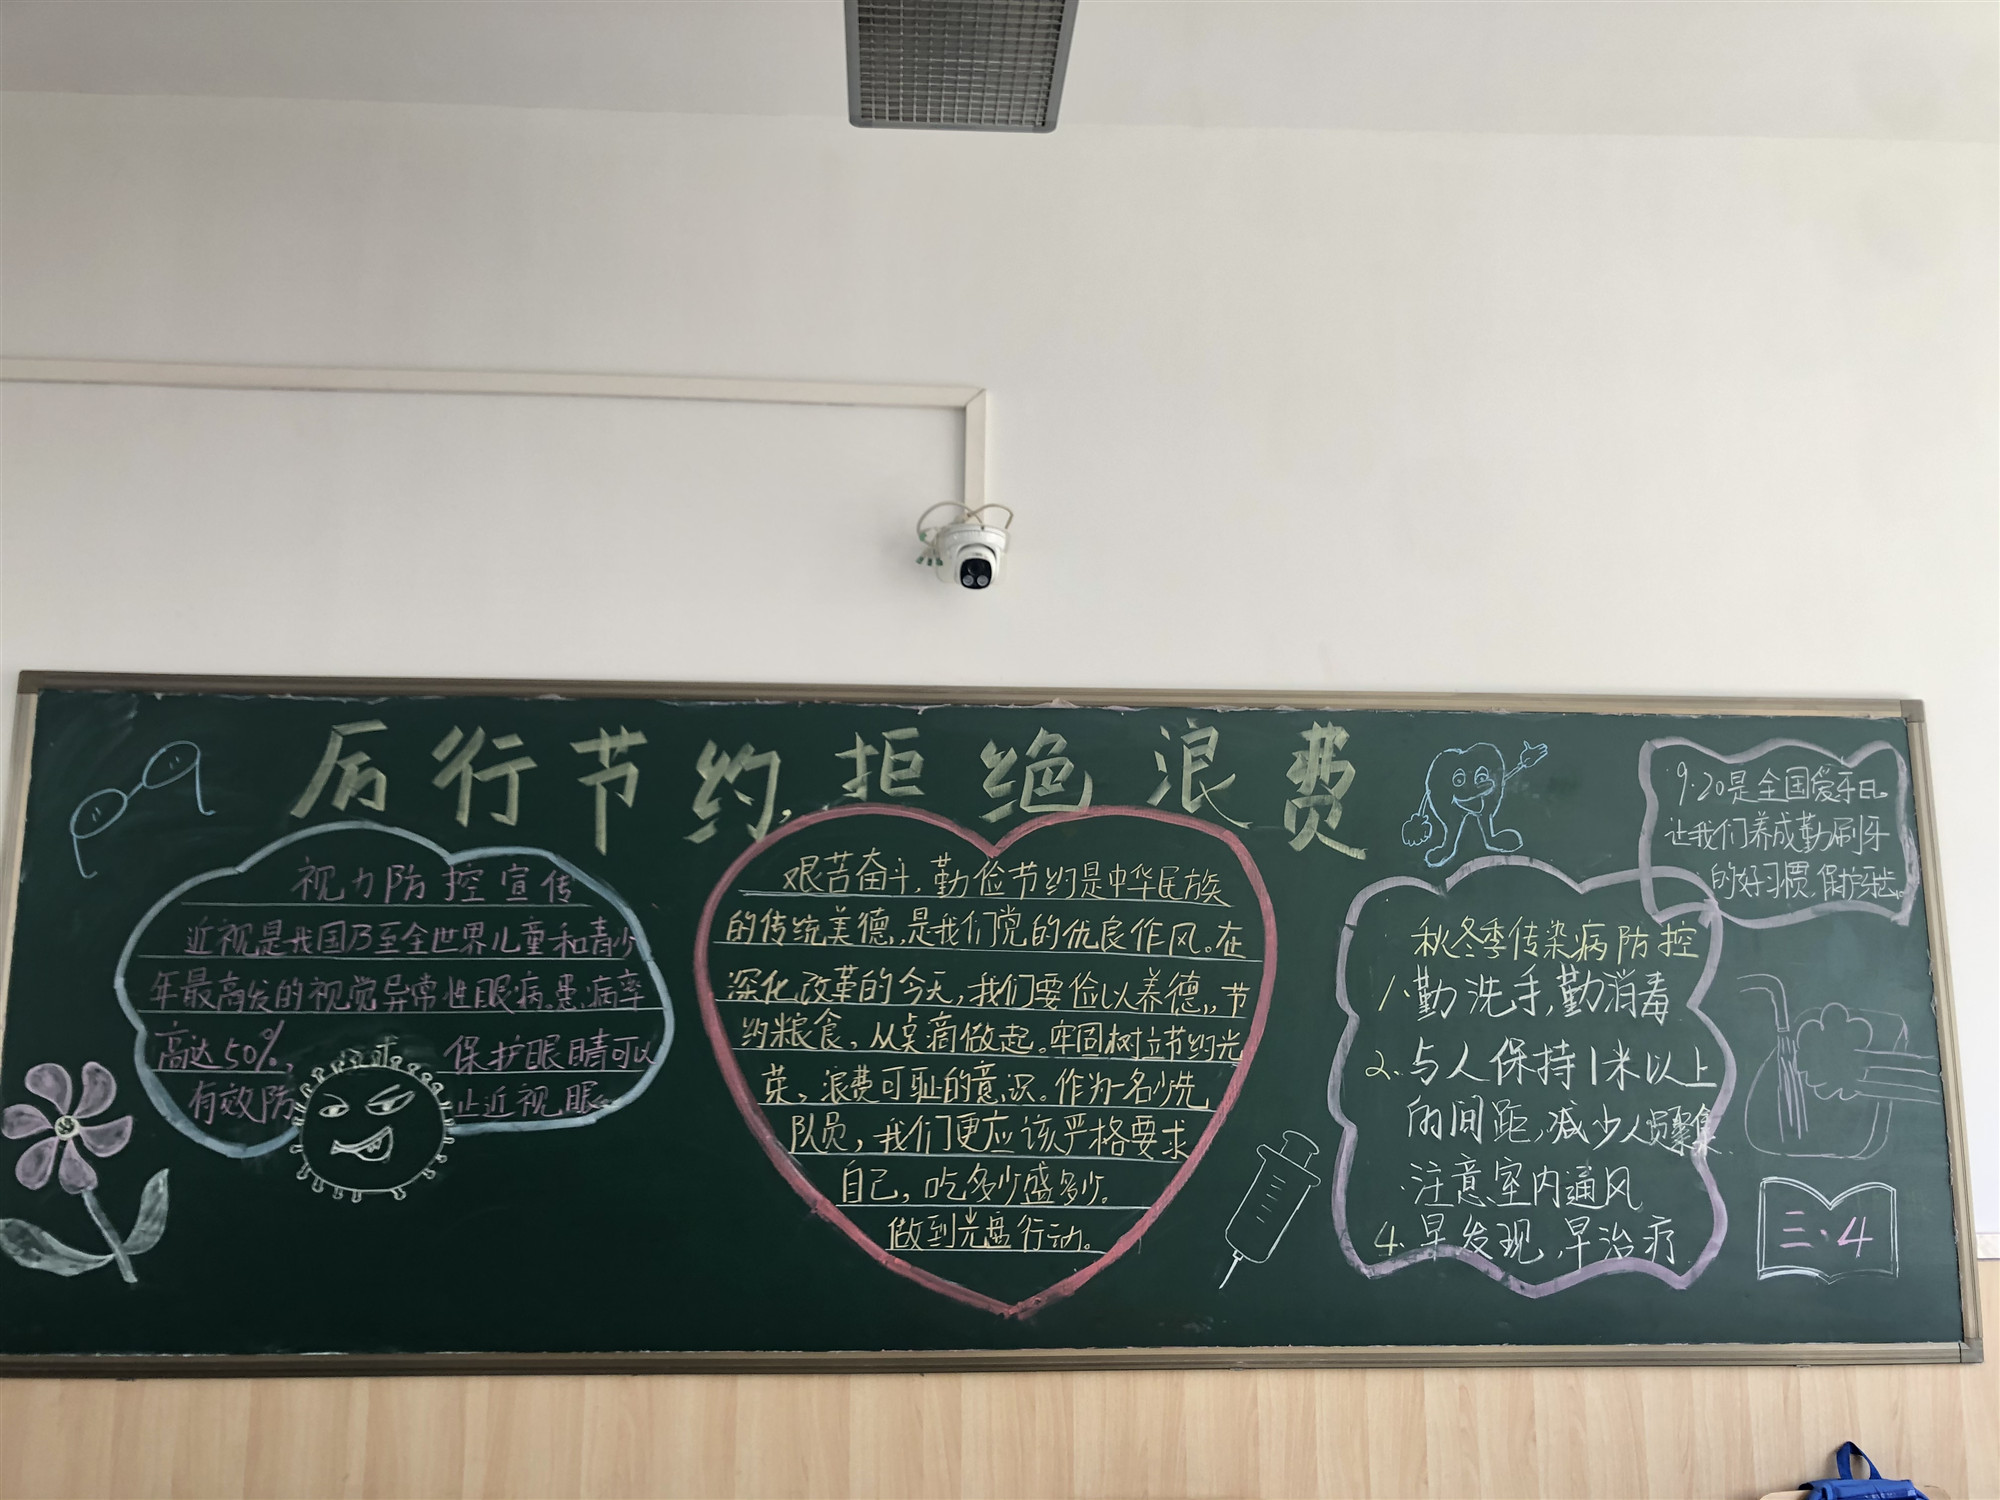 厉行节约,拒绝浪费
视力防控宣传
近视是我国乃至全世界儿童和青少
年最高发的视觉异常性眼病。患病率
高达50%, 保护眼睛可以
有效防止近视眼。
艰苦奋斗,勤俭节约是中华民族
的传统美德,是我们党的优良作风。在
深化改革的今天,我们要俭以养德,,节
约粮食,从桌商做起。牢固树立节约光
荣,浪费可耻的意识。作为一名少先
队员,我们更应该严格要求
自己,吃多少盛多少。
做到光盘行动。
9.20是全国爱牙日。
让我们养成勤刷牙
的好习惯,保护牙齿。
秋冬季传染病防控
1.勤洗手,勤消毒
2.与人保持1米以上
的间距,减少人员聚集
注意室内通风
4.早发现,早治疗
三.4